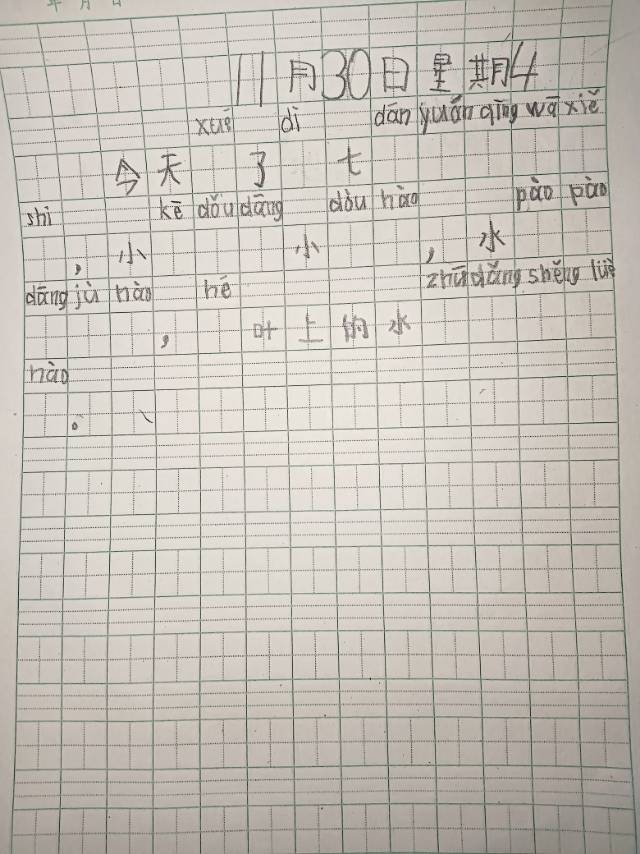 年 月 日
11月30日星期4
xué dì dān yuán qīng wā xiě
今天 了 七
shī kē dǒu dāng dòu hào pào pào
，小 小 ，水
dāng jù hào hé zhū dǎng shěng lüè
， 叶上的水
hào
。、